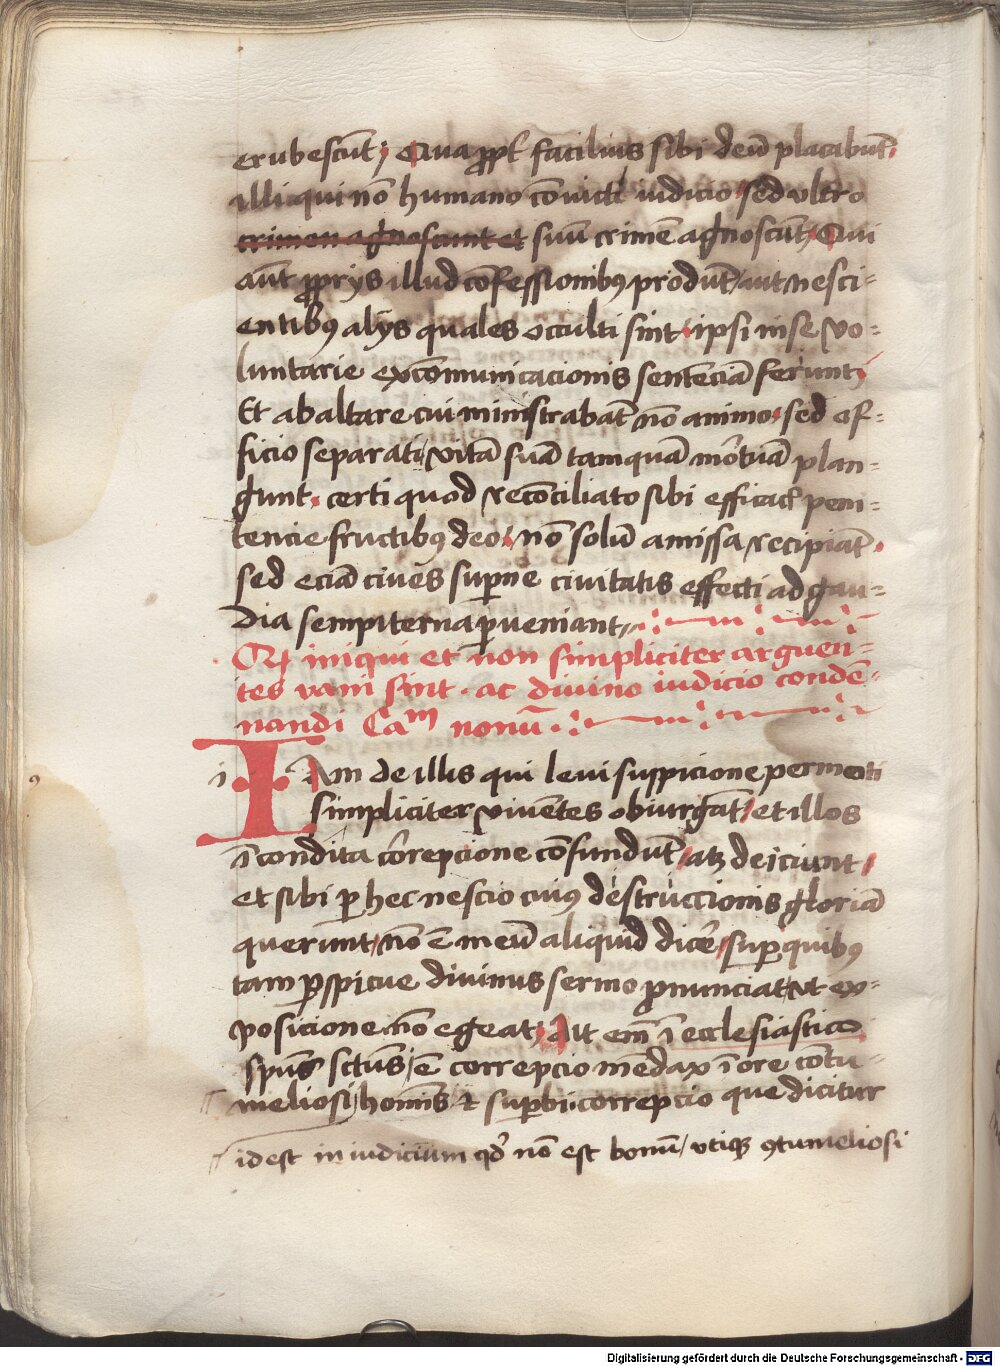 erubescūt; Qua ꝓpt̄ facilius sibi deū placabūt.
illi qui nō humano cōuicti iudicio sed vltro
crimen agnoscunt et suū crimē agnoscūt, Qui
aūt ꝓprijs illud cōfessionibꝰ produt̄ / aut nesci-
entibꝰ alijs quales occulti sint ipsi in se vo-
luntarie excōmunicacionis sentenciā ferunt;
Et ab altare cui ministrabāt nō animo sed of-
ficio separati, vitā suā tamquā mortuā plan-
gunt. certi quod reconciliato sibi efficac̄ peni-
tencie fructibꝰ deo. nō solū amissa recipiāt.
sed eciā ciues suꝑne ciuitatis effecti ad gau-
dia sempiterna ꝑueniant
Qꝫ iniqui et non simpliciter arguen-
tes vani sint. ac diuino iudicio condē-
nandi Caᵐ nonū
i Iam de illis qui leui suspicione permoti
simpliciter viuētes obiurgāt / et illos
ī condita correpcione confundūt / atꝫ deiciunt /
et sibi ꝑ hec nescio cuiꝰ destruccionis gloriā
querunt, nō ē meū aliquid dicē, suꝑ quibꝰ
tam ꝑspicue diuinus sermo ꝓnunciat, vt ex-
posicione nō egeat; Ait em̄ ī ecclesiastico
spūs sctūs, ē correpcio mēdax ī ore cōtu-
meliosi, hoīs ⁊ suꝑbi. correpcio que dicitur
id est in iudicium qd̓ nō est bonū, vtiqꝫ ꝯtumeliosi
Digitalisierung gefördert durch die Deutsche Forschungsgemeinschaft - DFG